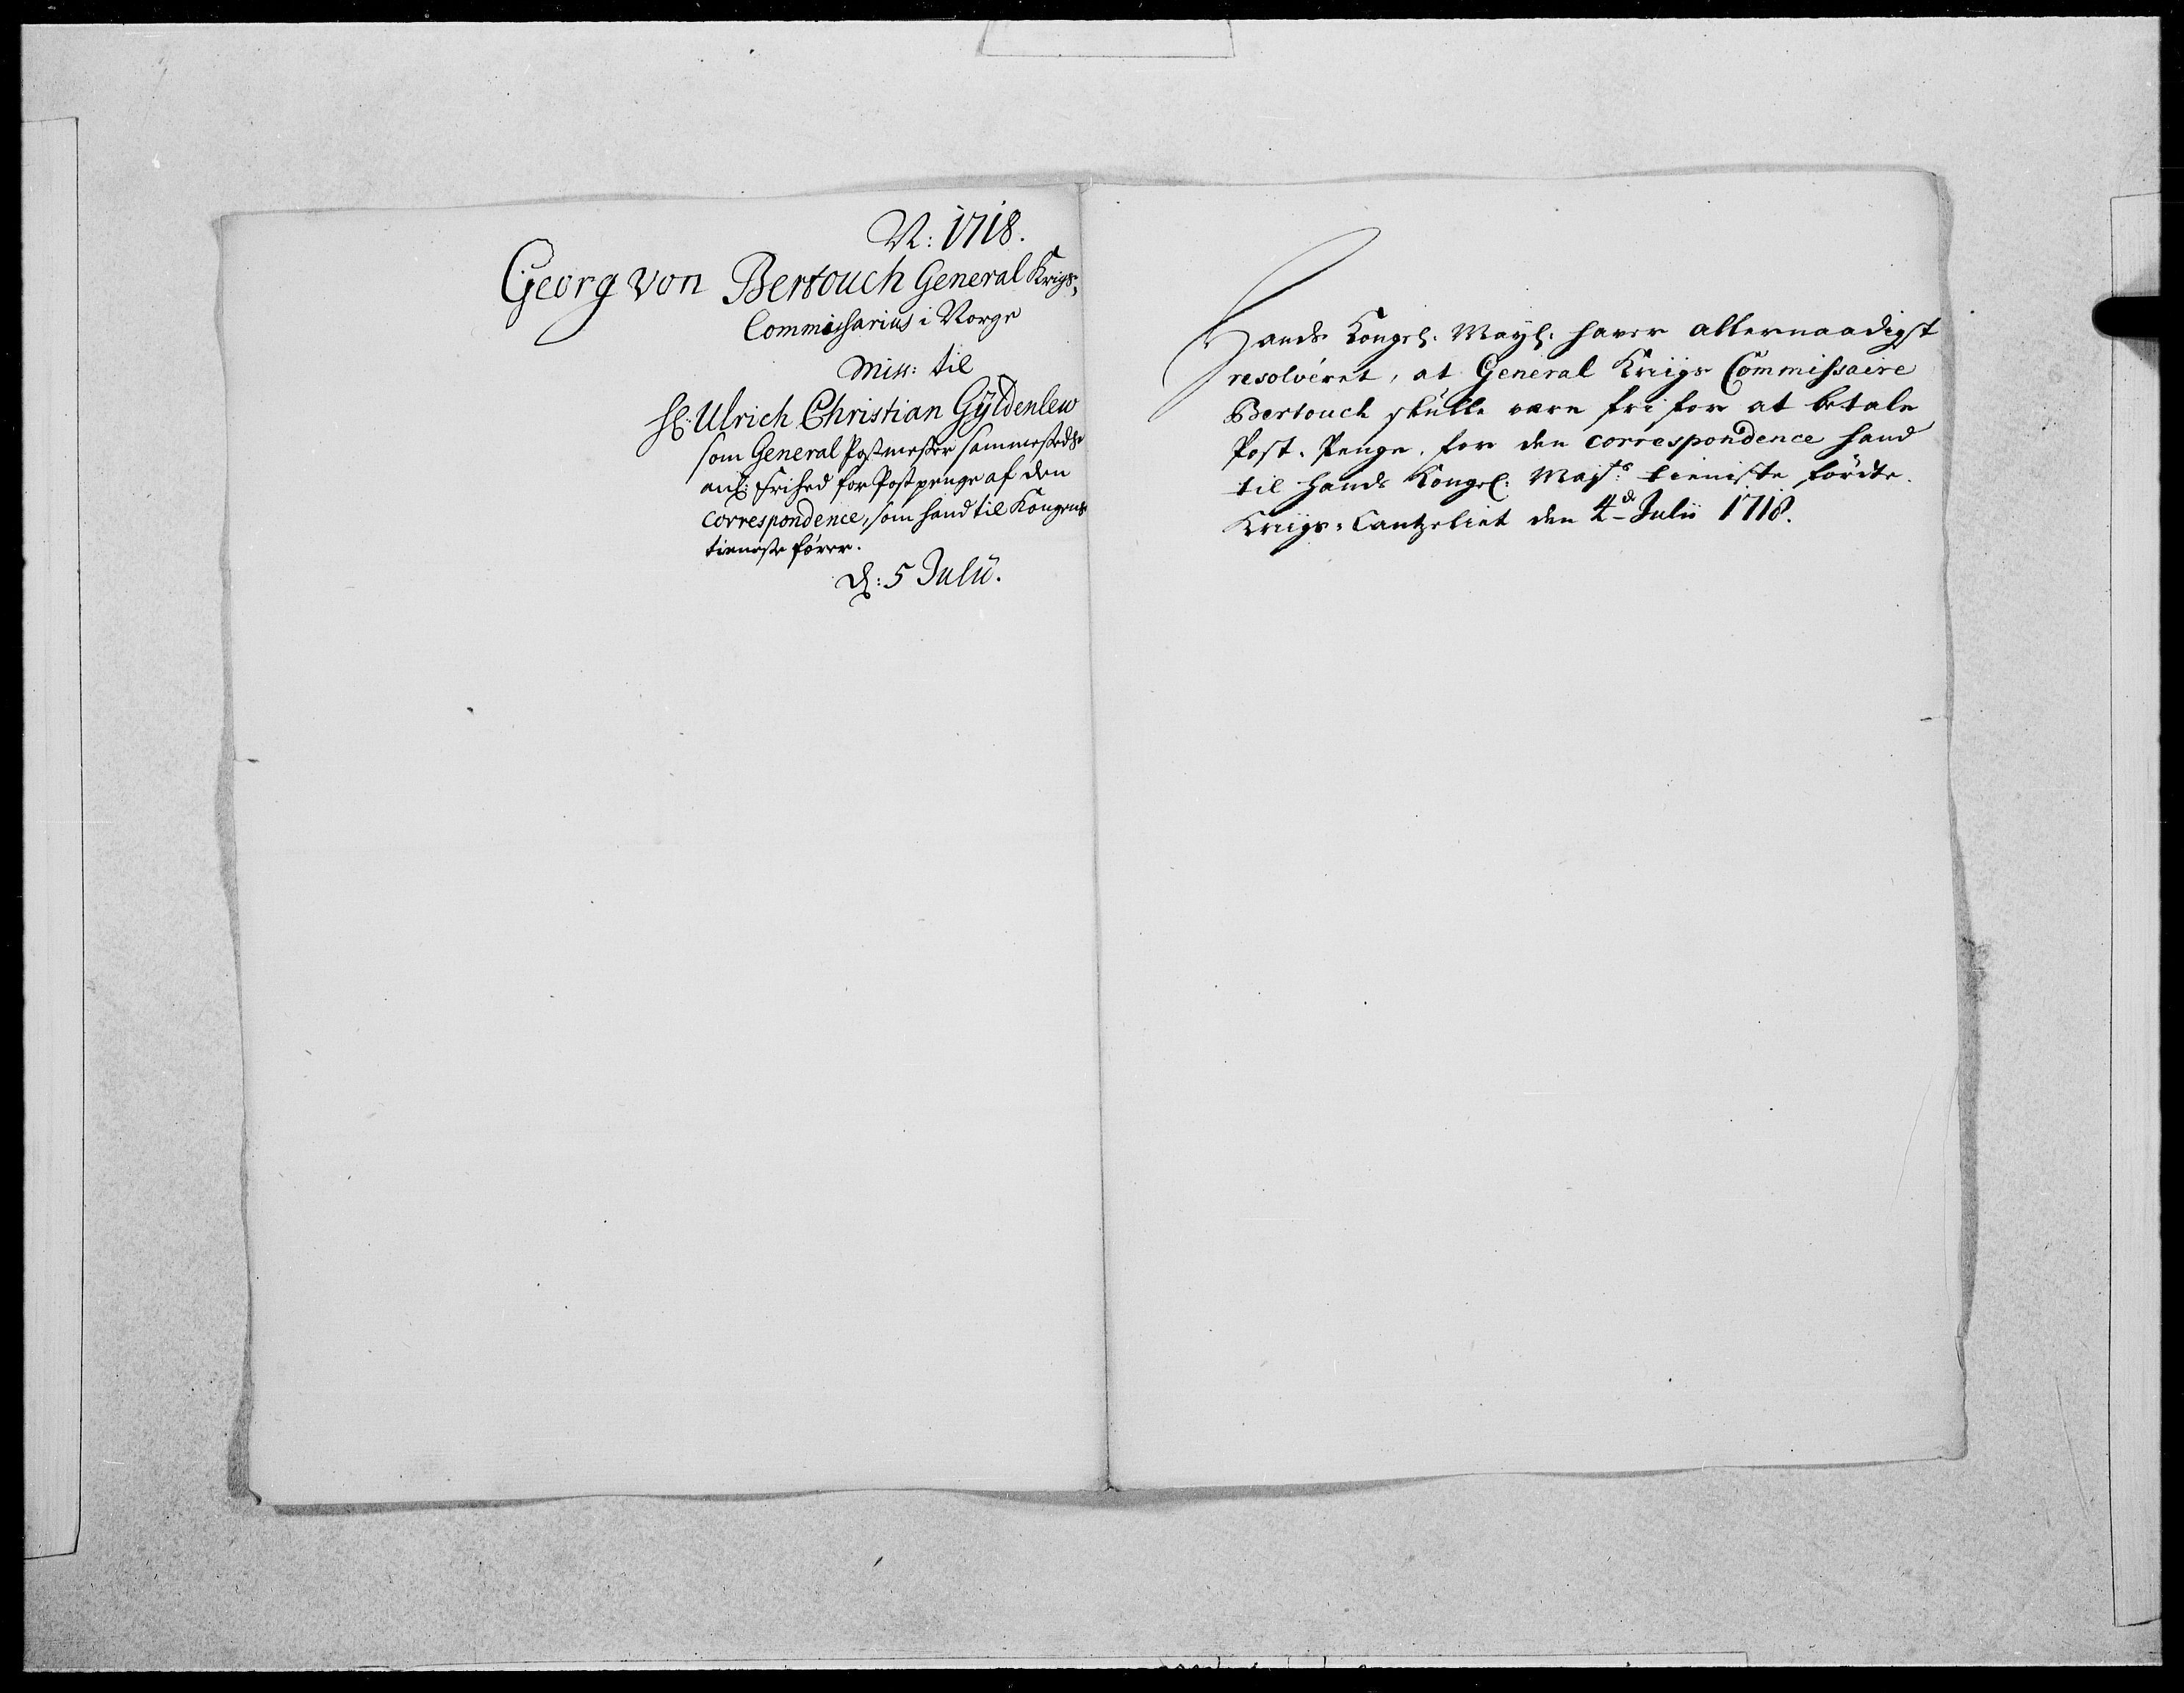 N: 1718.
Georg von Bertouch General Krigs-
Commissarius i Norge
Miss: til
H: Ulrich Christian Gÿldenlew
som General Postmester sammestedts
anl: frihed for Postpenge af den
correspondence, som hand til Kongens
tieneste fører.
d: 5 Julii.
Hands Kongel: Mayt: haver allernaadigst
resolveret, at General Kriigs Commissaire
Bertouch skulle være fri for at betale
Post-Penge, for den correspondence hand
til Hands Kongel: Majts: tieniste förde.
Kriigs-Cantzeliet den 4de Julii 1718.